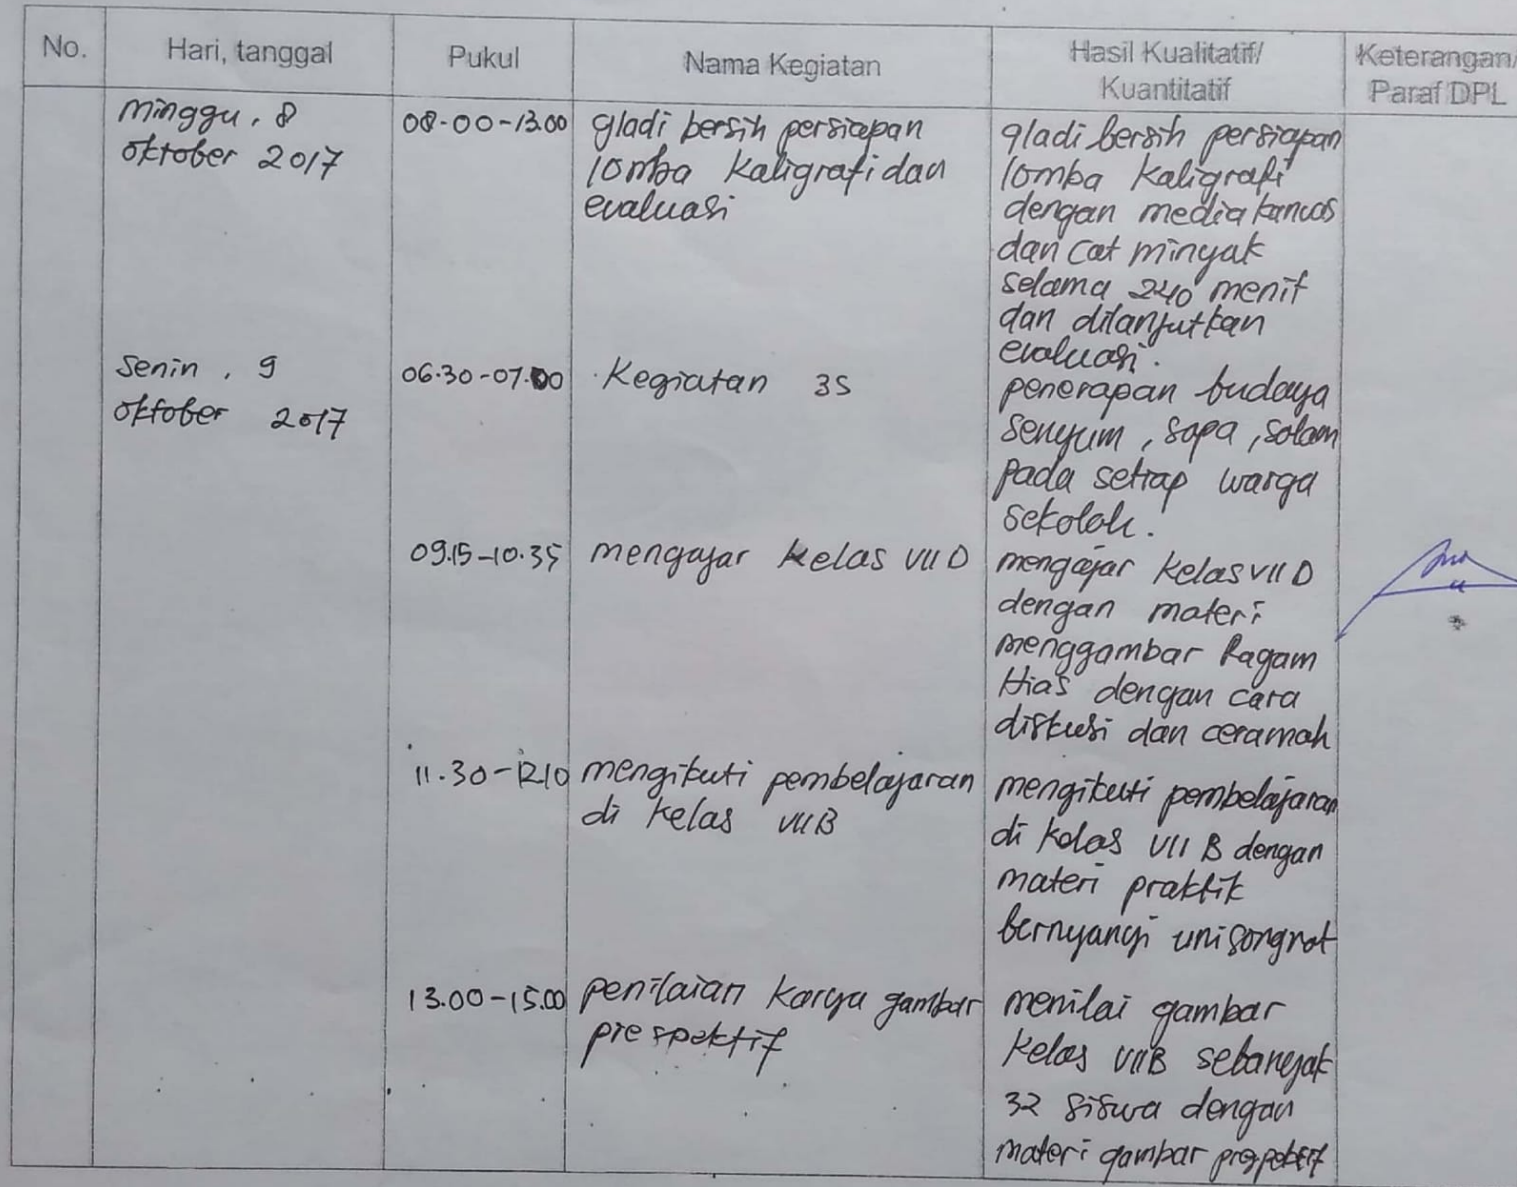 No.
Hari, tanggal
Pukul
Nama Kegiatan
Hasil Kualitatif/
Kuantitatif
Keterangan/
Paraf DPL
Minggu, 8
Oktober 2017
08.00-13.00
gladi bersih persiapan
lomba kaligrafi dan
evaluasi
gladi bersih persiapan
lomba kaligrafi
dengan media kanvas
dan cat minyak
selama 240 menit
dan dilanjutkan
evaluasi.
Senin, 9
Oktober 2017
06.30-07.00
Kegiatan 3S
penerapan budaya
senyum, sapa, salam
pada setiap warga
sekolah.
09.15-10.35
mengajar kelas VII D
mengajar kelas VII D
dengan materi
menggambar Ragam
Hias dengan cara
diskusi dan ceramah
11.30-12.10
mengikuti pembelajaran
di kelas VII B
mengikuti pembelajaran
di kelas VII B dengan
materi praktik
bernyanyi
13.00-15.00
penilaian karya gambar
prespektif
menilai gambar
kelas VII B sebanyak
32 siswa dengan
materi gambar